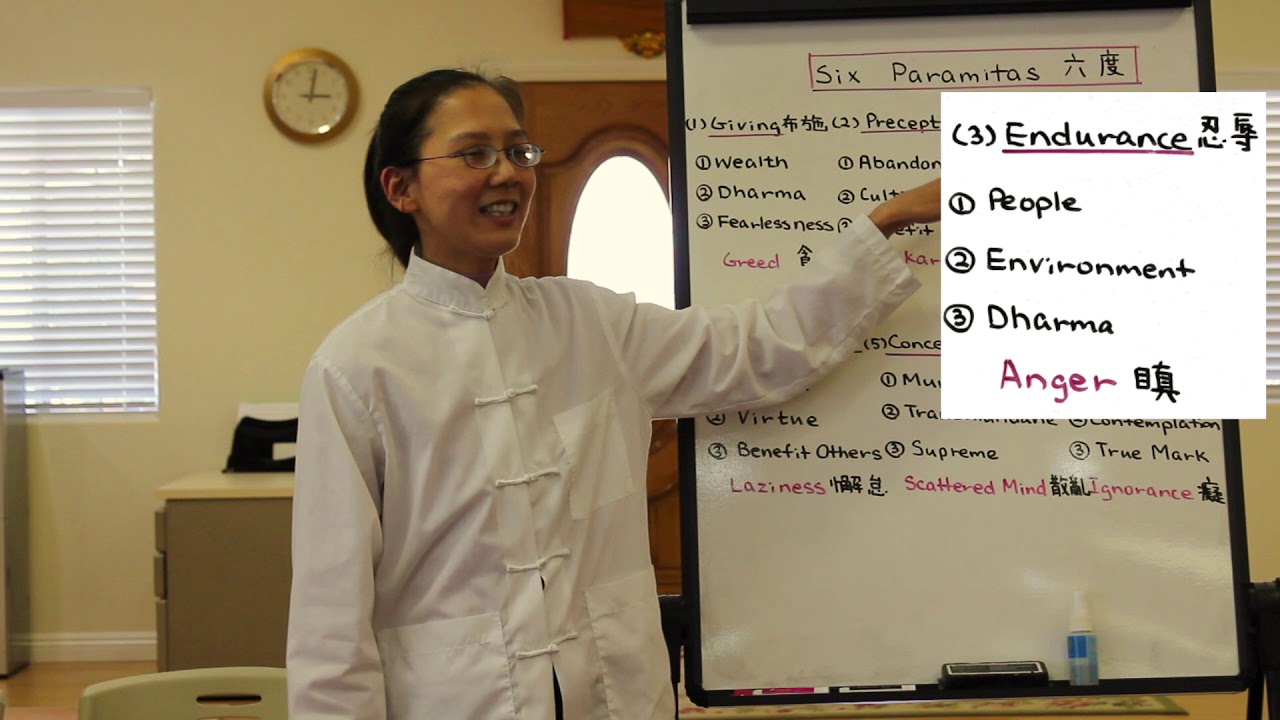 Six Paramitas 六度
(1) Giving布施 (2) Precept
① Wealth
② Dharma
③ Fearlessness
Greed 貪
① Abandon
② Culti
(3) Endurance 忍辱
① People
② Environment
③ Dharma
Anger 瞋
② Virtue
③ Benefit Others
Laziness 懈怠
(5) Conce
① Mu
② Tra
③ Supreme
Scattered Mind 散亂
② Contemplation
③ True Mark
Ignorance 癡